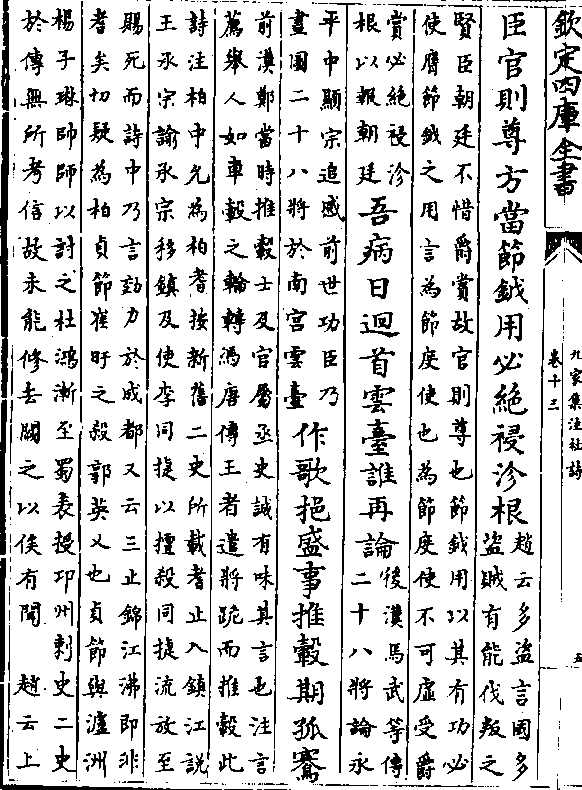 欽定四庫全書
九家集注杜詩
卷十三
五
臣官則尊方當節鉞用必絕祲沴根
趙云多盜言國多
盜賊有能伐叛之
賢臣朝廷不惜爵賞故官則尊也節鉞用以其有功必
使膺節鉞之用言為節度使也為節度使不可虛受爵
賞必絕祲沴
根以報朝廷
吾病日迴首雲臺誰再論
後漢馬武等傳
二十八將論永
平中顯宗追感前世功臣乃
畫圖二十八將於南宮雲臺
作歌挹盛事推轂期孤騫
前漢鄭當時推轂士及官屬丞史誠有味其言也注言
薦舉人如車轂之輪轉馮唐傳王者遣將跪而推轂此
詩注柏中允為柏耆按新舊二史所載耆止入鎮江說
王承宗諭承宗移鎮及使李同捷以擅殺同捷流放至
賜死而詩中乃言勠力於成都又云三止錦江沸即非
耆矣切疑為柏貞節崔旰之殺郭英乂也貞節與瀘洲
楊子琳師師以討之杜鴻漸至蜀表授邛州刺史二史
於傳無所考信故未能修去闕之以俟有聞　趙云上